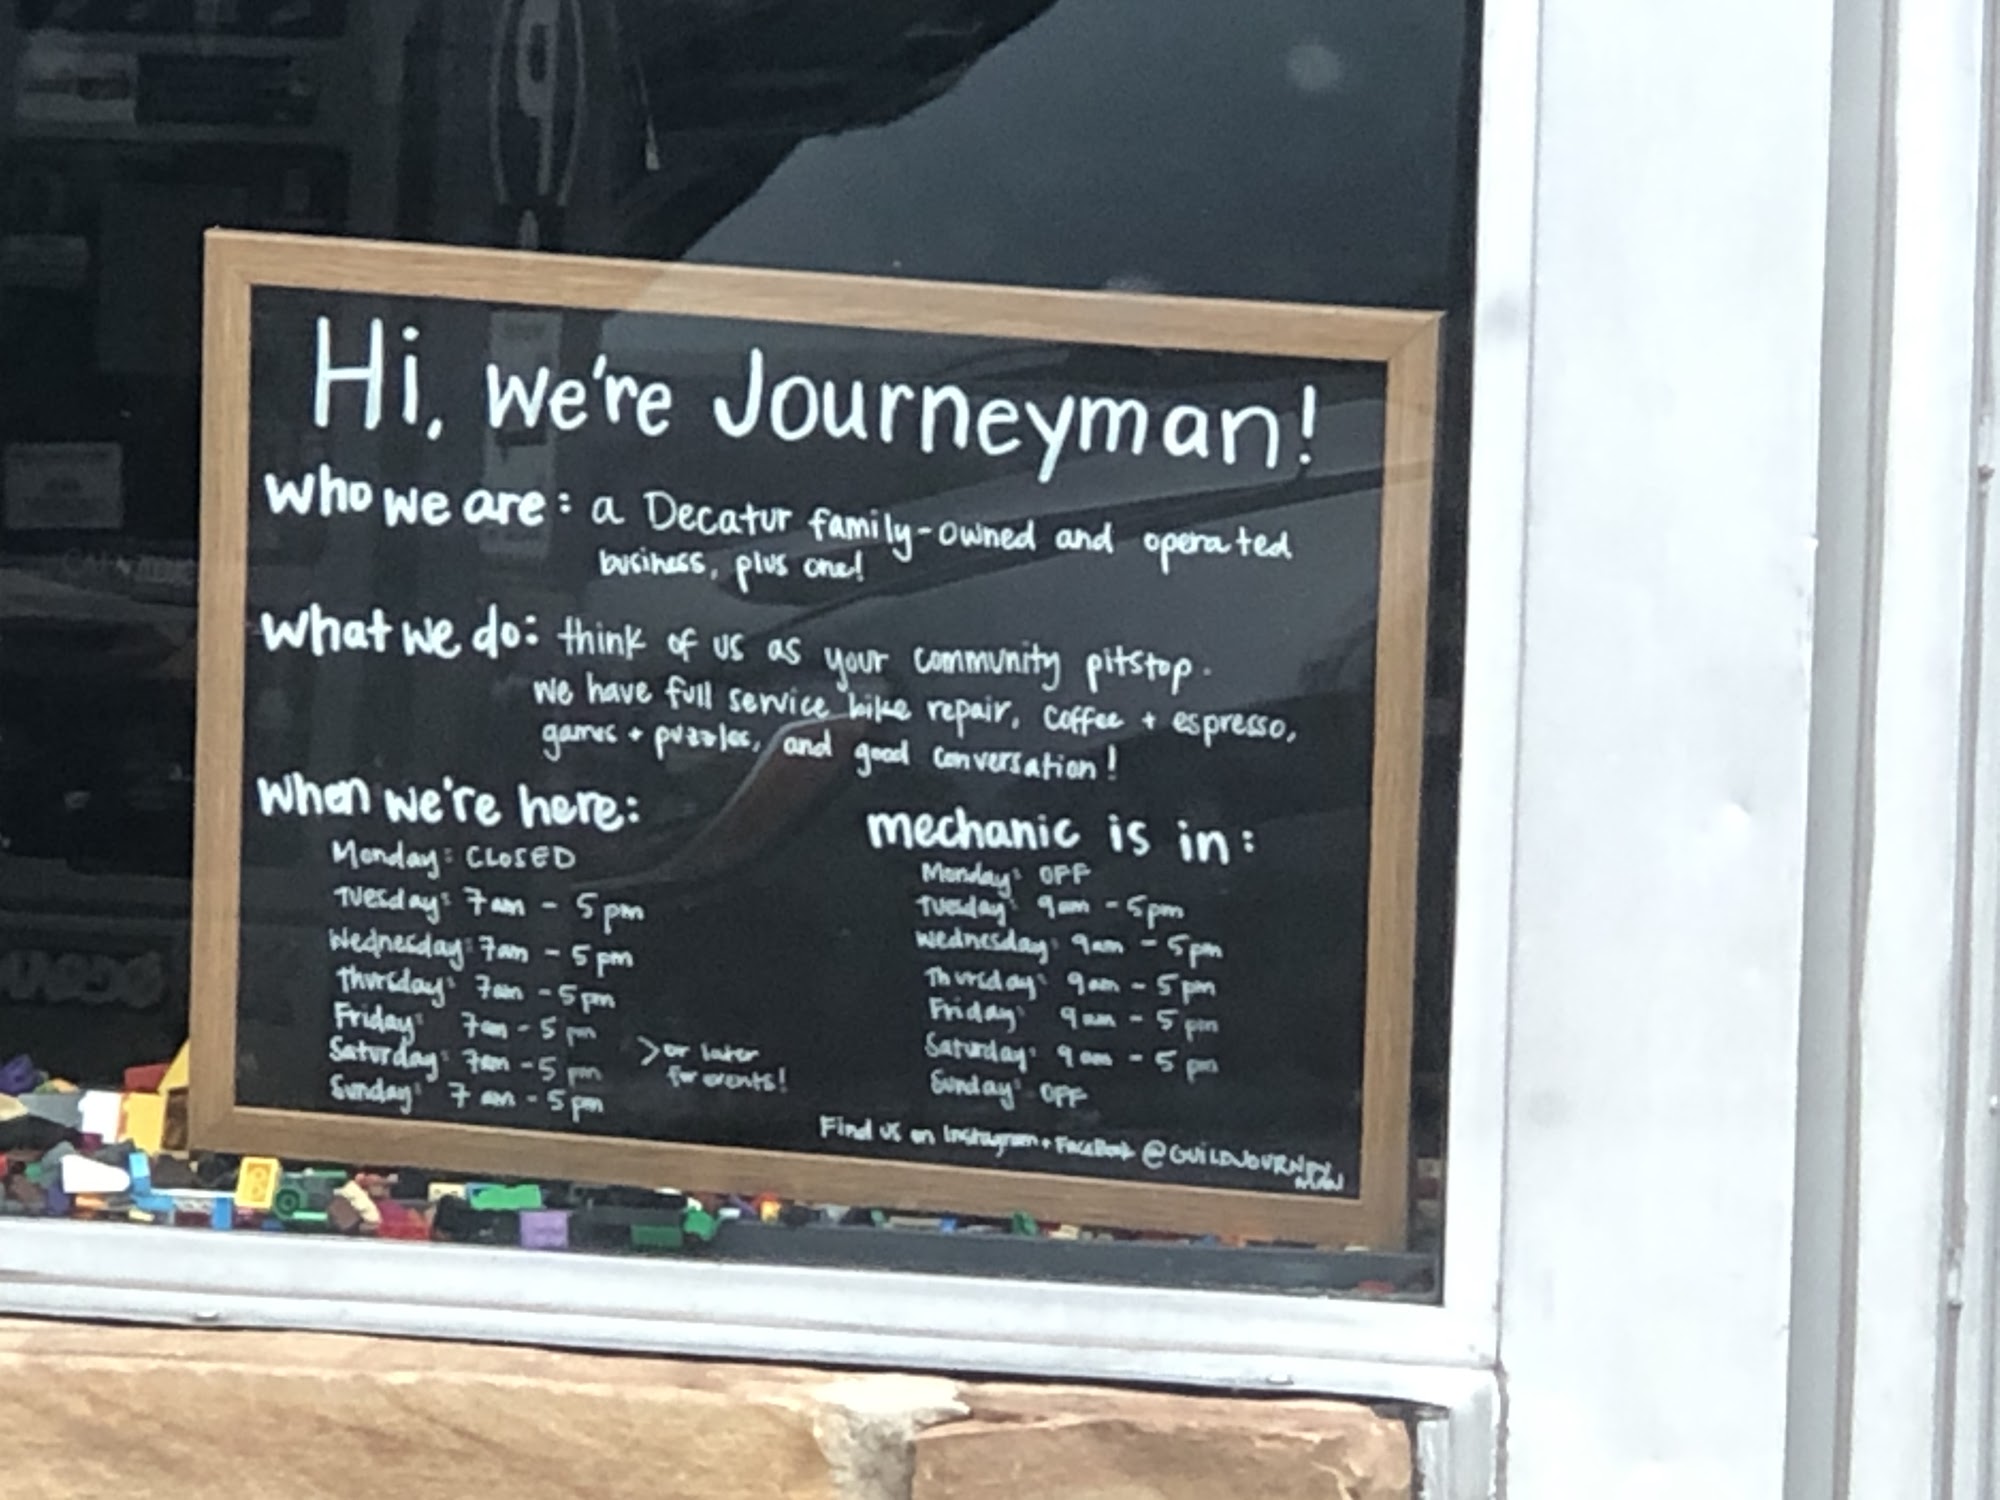 Hi, we're Journeyman!
who we are: a Decatur family-owned and operated
business, plus one!
what we do: think of us as your community pitstop.
we have full service bike repair, coffee + espresso,
games + puzzles, and good conversation!
when we're here:
Monday: CLOSED
Tuesday: 7am - 5pm
Wednesday: 7am - 5pm
Thursday: 7am - 5pm
Friday: 7am - 5pm
Saturday: 7am - 5pm
Sunday: 7am - 5pm
>or later
for events!
mechanic is in:
Monday: OFF
Tuesday: 9am - 5pm
Wednesday: 9am - 5pm
Thursday: 9am - 5pm
Friday: 9am - 5pm
Saturday: 9am - 5pm
Sunday: OFF
Find us on Instagram + FaceBook @GUILDJOURNEY
MAN